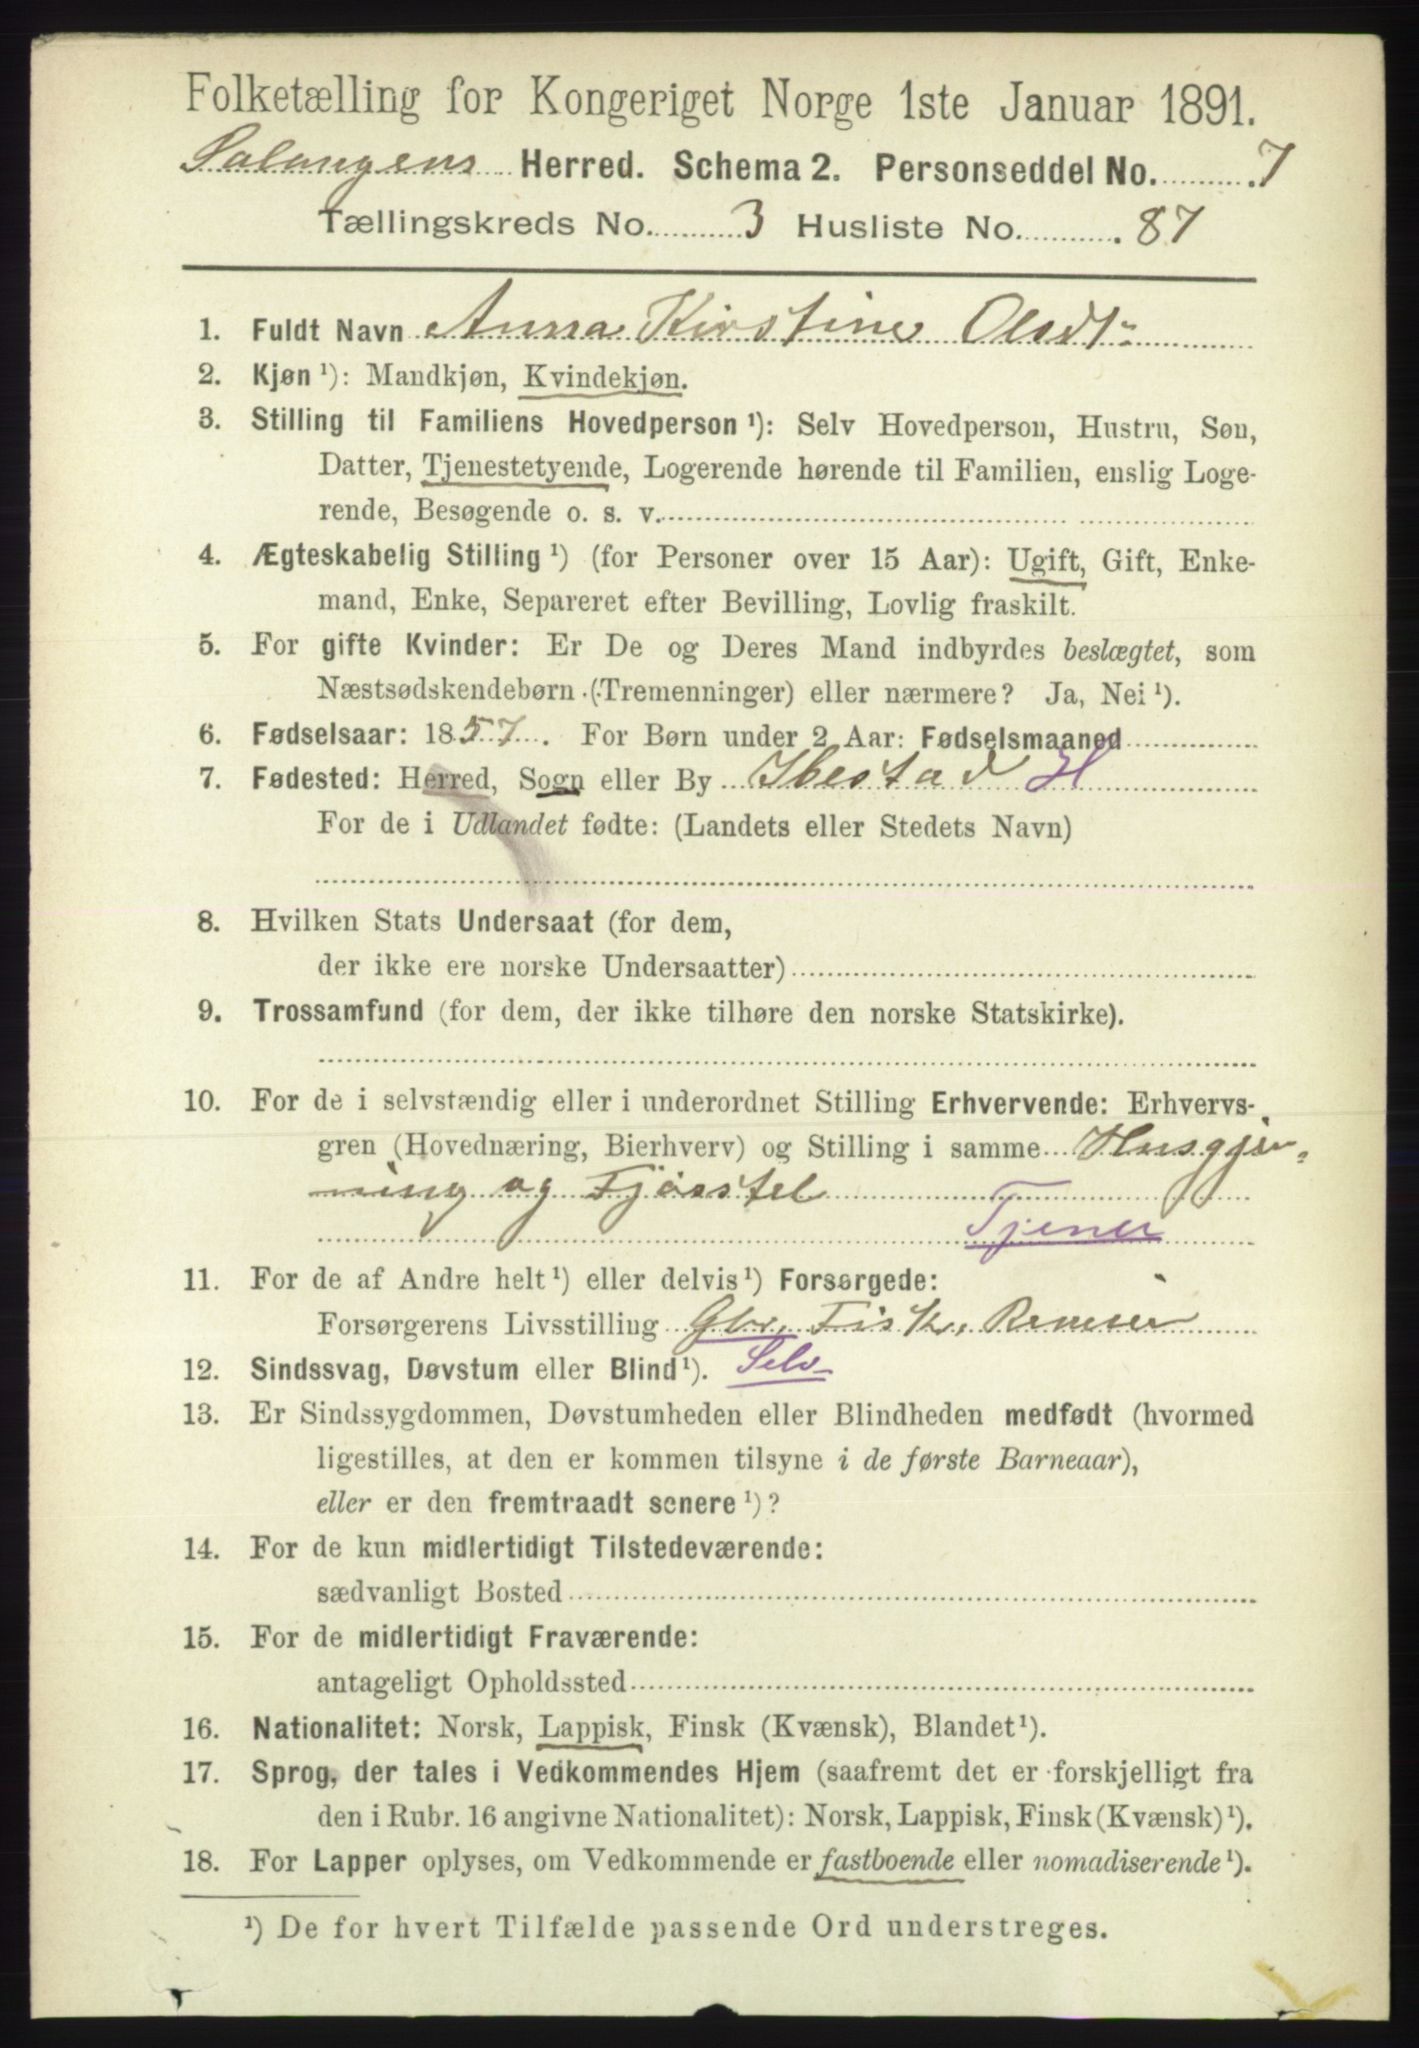 Folketælling for Kongeriget Norge 1ste Januar 1891.
Salangens Herred. Schema 2. Personseddel No. 7
Tællingskreds No. 3 Husliste No. 87
1. Fuldt Navn Anna Kirstine Olsdt:
2. Kjøn ¹): Mandkjøn, Kvindekjøn.
3. Stilling til Familiens Hovedperson ¹): Selv Hovedperson, Hustru, Søn,
Datter, Tjenestetyende, Logerende hørende til Familien, enslig Loge-
rende, Besøgende o. s. v.
4. Ægteskabelig Stilling ¹) (for Personer over 15 Aar): Ugift, Gift, Enke-
mand, Enke, Separeret efter Bevilling, Lovlig fraskilt.
5. For gifte Kvinder: Er De og Deres Mand indbyrdes beslægtet, som
Næstsødskendebørn (Tremenninger) eller nærmere? Ja, Nei ¹).
6. Fødselsaar: 1857. For Børn under 2 Aar: Fødselsmaaned
7. Fødested: Herred, Sogn eller By Ibestad H
For de i Udlandet fødte: (Landets eller Stedets Navn)
8. Hvilken Stats Undersaat (for dem,
der ikke ere norske Undersaatter)
9. Trossamfund (for dem, der ikke tilhøre den norske Statskirke).
10. For de i selvstændig eller i underordnet Stilling Erhvervende: Erhvervs-
gren (Hovednæring, Bierhverv) og Stilling i samme Husgjer-
ning og Fjøsstel
Tjener
11. For de af Andre helt ¹) eller delvis ¹) Forsørgede:
Forsørgerens Livsstilling Gbr. Fisk.
12. Sindssvag, Døvstum eller Blind ¹). Selv
13. Er Sindssygdommen, Døvstumheden eller Blindheden medfødt (hvormed
ligestilles, at den er kommen tilsyne i de første Barneaar),
eller er den fremtraadt senere ¹)?
14. For de kun midlertidigt Tilstedeværende:
sædvanligt Bosted
15. For de midlertidigt Fraværende:
antageligt Opholdssted
16. Nationalitet: Norsk, Lappisk, Finsk (Kvænsk), Blandet ¹).
17. Sprog, der tales i Vedkommendes Hjem (saafremt det er forskjelligt fra
den i Rubr. 16 angivne Nationalitet): Norsk, Lappisk, Finsk (Kvænsk) ¹).
18. For Lapper oplyses, om Vedkommende er fastboende eller nomadiserende ¹).
¹) De for hvert Tilfælde passende Ord understreges.